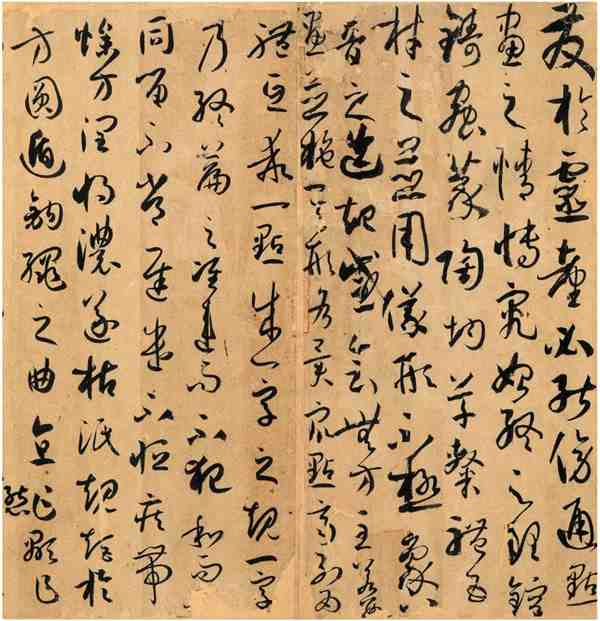 發於靈臺必能傍通點
畫之情博究始終之理鎔
鑄蟲篆陶均草隸體五
材之並用儀形不極象八
音之迭起感會無方至若數
畫並施其形各異眾點齊列為
體互乖一點成一字之規一字
乃終篇之准違而不犯和而不
同留不常遲遣不恒疾帶
燥方潤將濃遂枯泯規矩於
方圓遁鉤繩之曲直乍顯乍